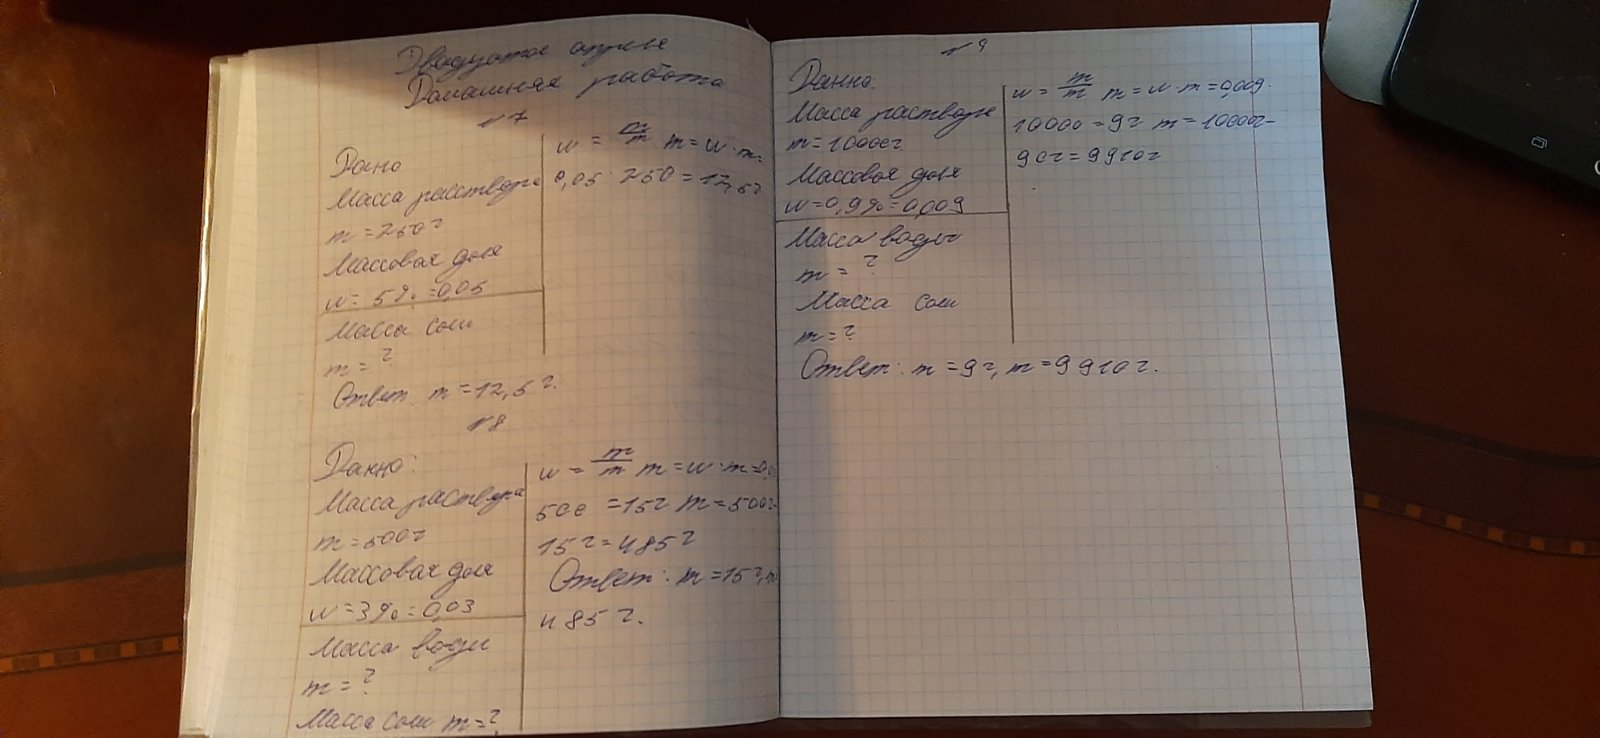 Двадцатое апреля
Домашняя работа
№7
Дано
Масса расствора
m = 250г
Массовая доля
w = 5% = 0,05
Масса соли
m = ?
w = m/m m = w · m =
0,05 · 250 = 12,5г
Ответ: m = 12,5г.
№8
Данно:
Масса раствора
m = 500г
Массовая доля
w = 3% = 0,03
Масса воды
m = ?
Масса соли m = ?
w = m/m m = w · m = 0,0
500 = 15г m = 500г-
15г = 485г
Ответ: m = 15г, m
485г.
№9
Данно:
Масса раствора
m = 10000г
Массовая доля
w = 0,9% = 0,009
Масса воды
m = ?
Масса соли
m = ?
w = m/m m = w · m = 0,009·
10000 = 9г m = 10000г-
90г = 9910г
Ответ: m = 9г, m = 9910г.